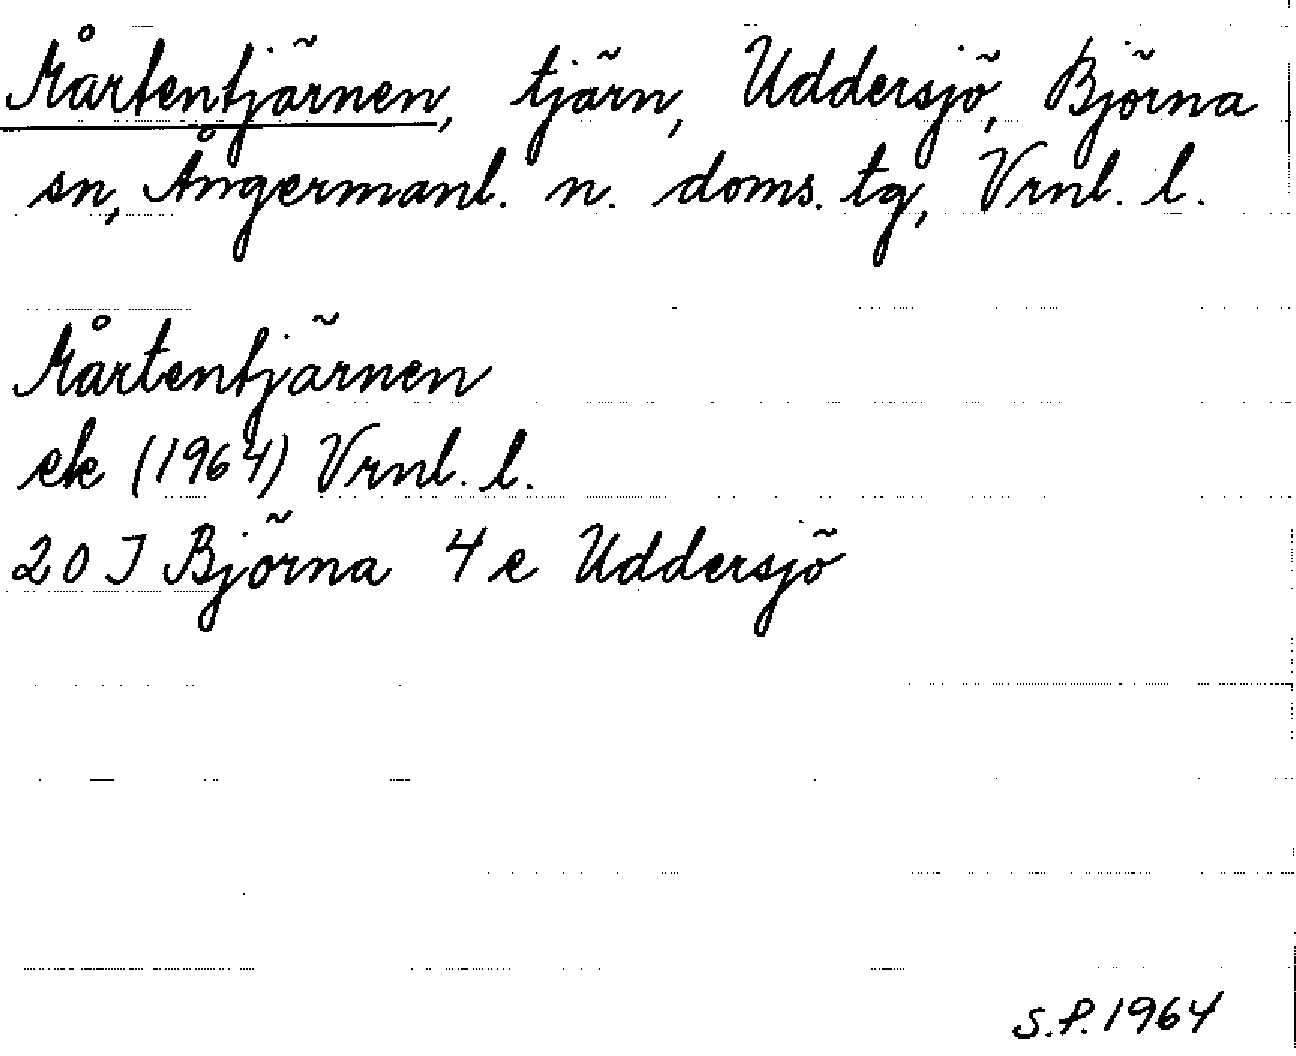 Mårtentjärnen, tjärn, Uddersjö, Björna
sn, Ångermanl. n. doms. tg, Vrnl. l.
Mårtentjärnen
ek (1964) Vrnl. l.
20 J Björna 4 e Uddersjö
S.P. 1964